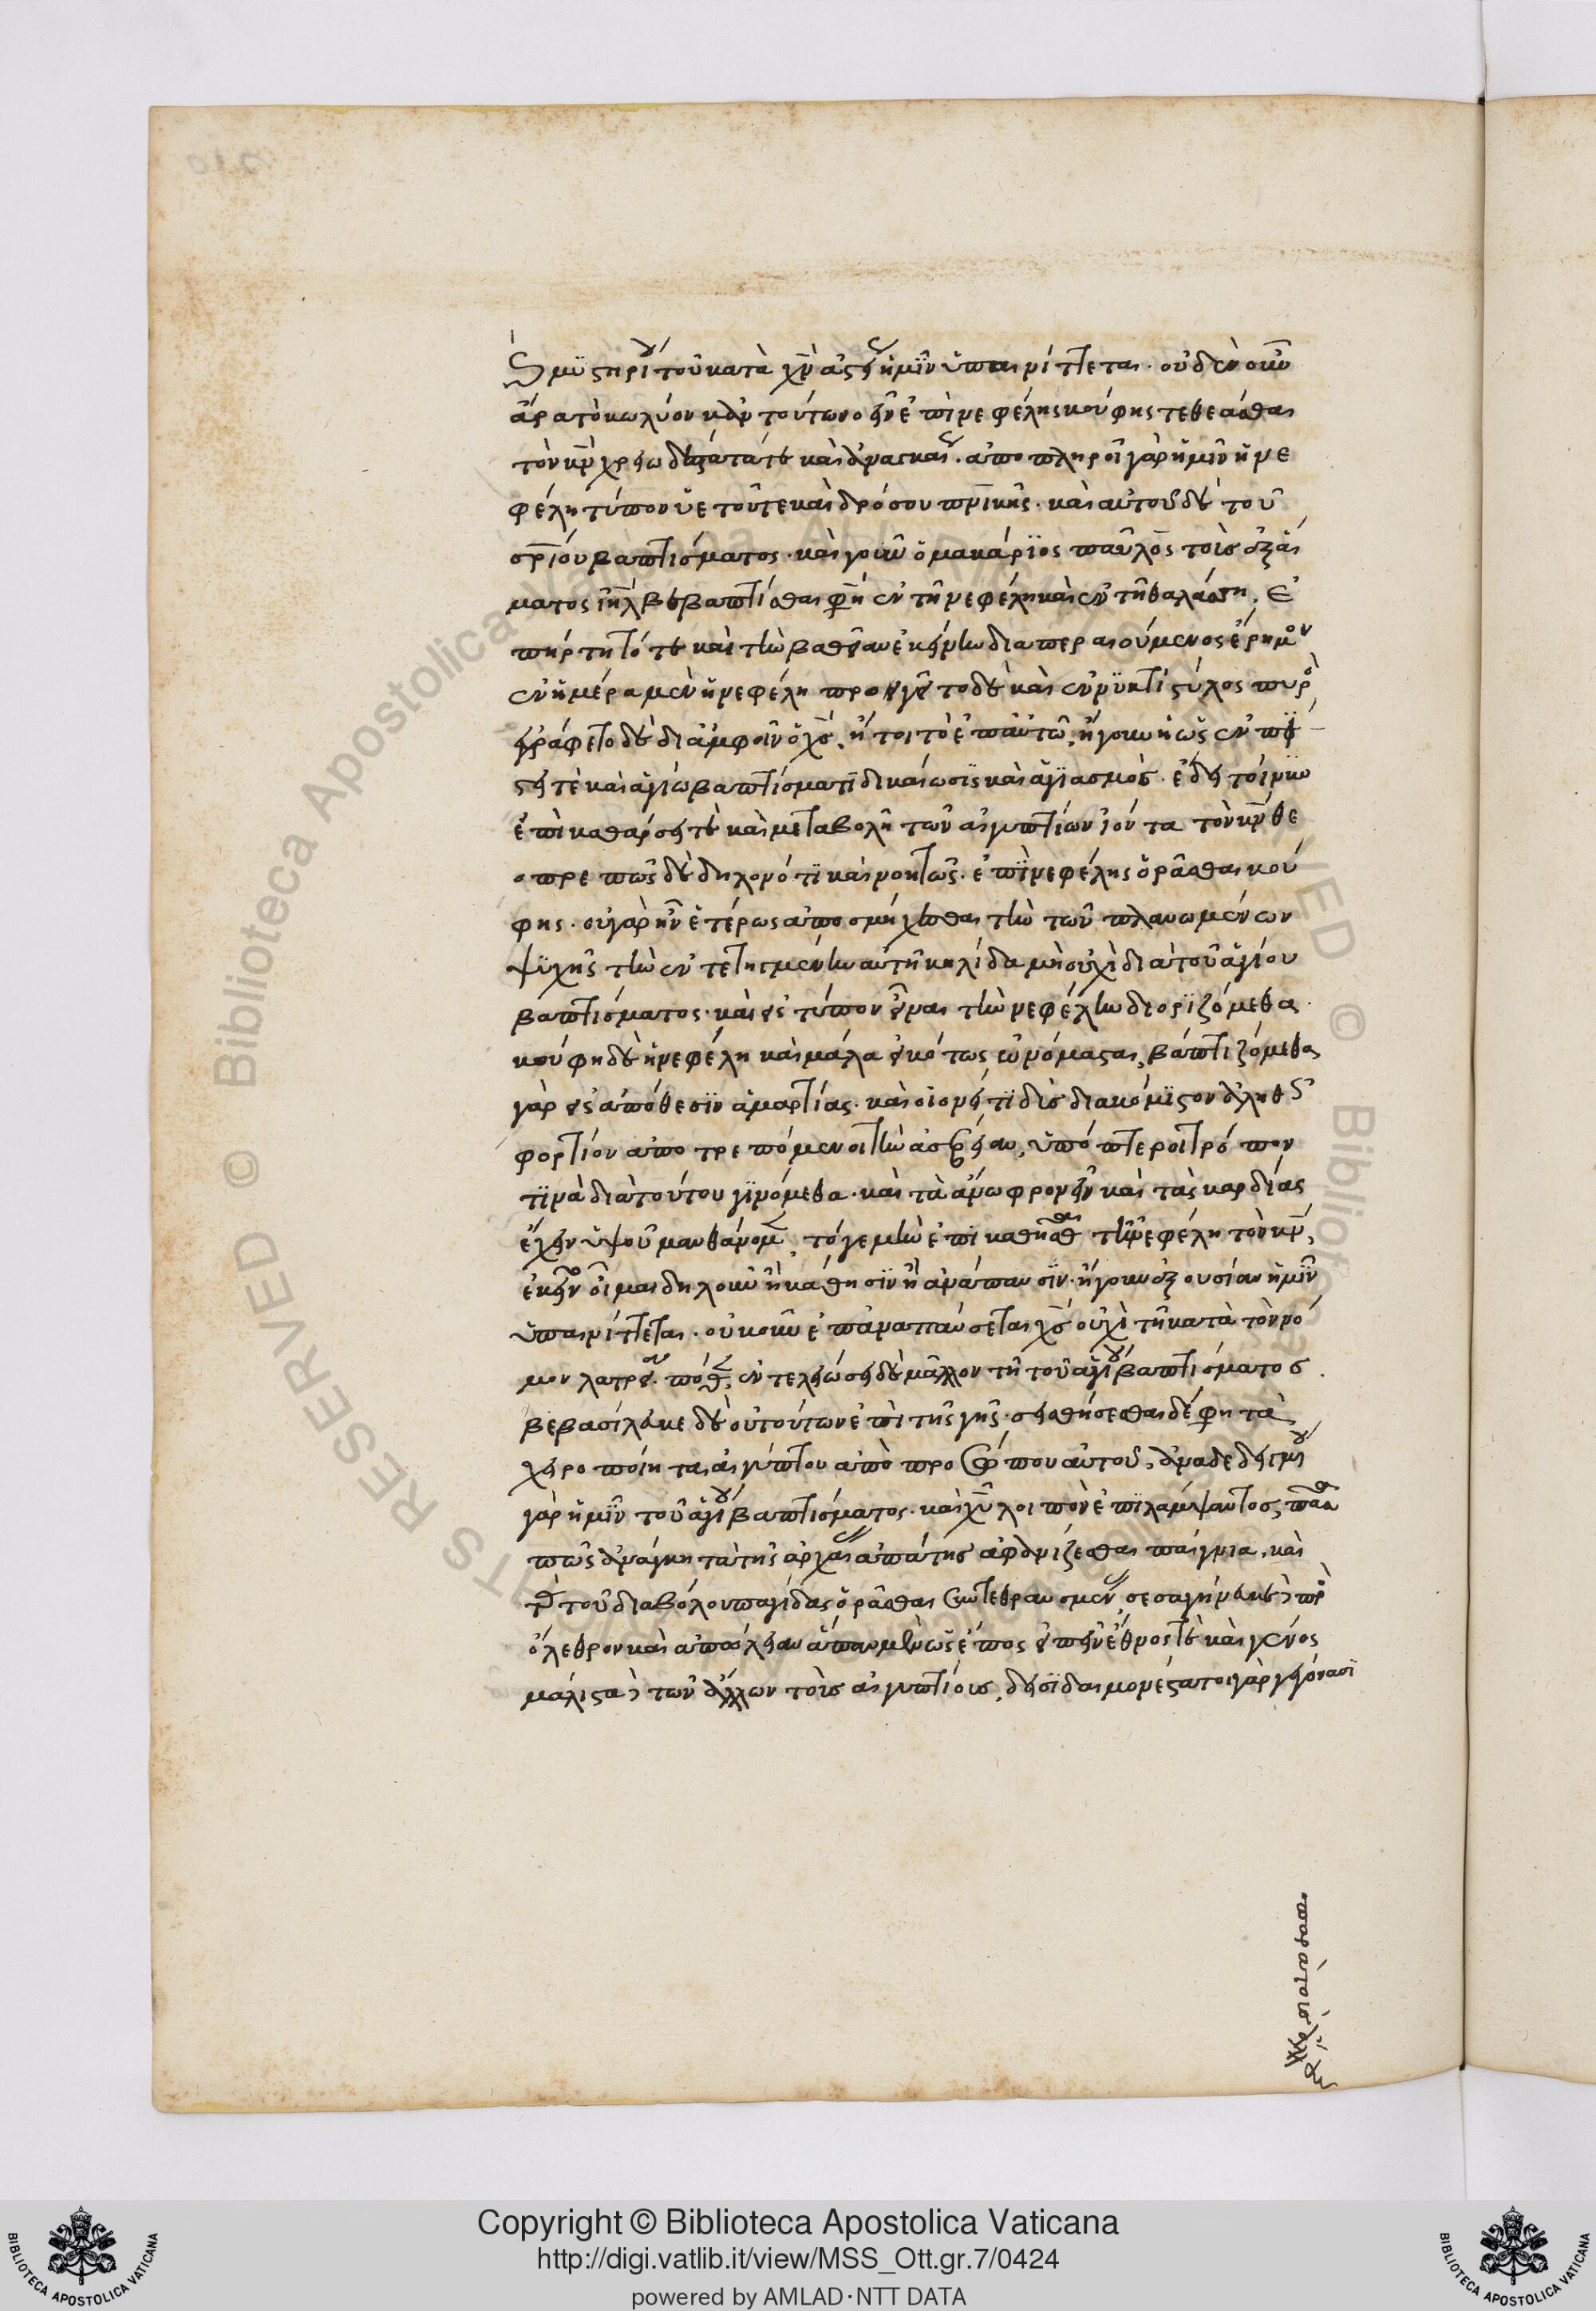 μυστηρίου τοῦ κατὰ χν̅ ἀστείως ἡμῖν ὑπαινίττεται· οὐδὲν οὖν
ἄρα τὸ κωλύον κἀν τούτω νοεῖν ἐπὶ νεφέλης κούφης τεθεᾶσθαι
τὸν κν̅ χρειωδέστατά τε καὶ ἀναγκαίως· ἀποπληροῖ γὰρ ἡμῖν ἡ νε
φέλη τύπον ὑετοῦ τε καὶ δρόσου πνικῆς· καὶ αὐτοῦ δὲ τοῦ
σριου βαπτίσματος· καὶ γοῦν ὁ μακάριος παῦλος τοὺς ἐξ αἵ
ματος ιηλ βεβαπτίσθαι φησὶν ἐν τῆ νεφέλη καὶ ἐν τῆ θαλάσση.
καὶ τὴν βαθεῖαν ἐκείνην διαπεραιούμενος ἔρημον
ἐν ἡμέρα μὲν ἡ νεφέλη προηγεῖτο δὲ καὶ ἐν νυκτὶ στύλος πυρὸς
ἐγράφετο δὲ δι' ἀμφοῖν ὁ χς̅, ἤτοι τὸ ἐπ' αὐτῶ, ἤγουν ἡ ὡς ἐν πί
στει τὲ καὶ ἁγίω βαπτίσματι δικαίωσις καὶ ἁγιασμός· ἔδει τοίνυν
ἐπὶ καθάρσει τὲ καὶ μεταβολῆ τῶν αἰγυπτίων ἰόντα τὸν κν̅ θε
οπρεπῶς δὲ δηλονότι καὶ νοητῶς· ἐπὶ νεφέλης ὁρᾶσθαι κού
φης· οὐ γὰρ ἦν ἑτέρως ἀποσμήχεσθαι τὴν τῶν πλανωμένων
ψυχῆς τὴν ἐντετηγμένην αὐτῆ κηλίδα μὴ οὐχὶ διὰ τοῦ ἁγίου
βαπτίσματος· καὶ εἰς τύπον εἶναι τὴν νεφέλην διοριζόμεθα·
κούφη δὲ ἡ νεφέλη καὶ μάλα εἰκότως ὠνόμασται, βαπτιζόμεθα
γὰρ εἰς ἀπόθεσιν ἁμαρτίας· καὶ οἱονεί τι δυσδιακόμιστον ἀληθῶς
φορτίον ἀποτρεπόμενοι τὴν ἀσέβειαν, ὑπόπτεροι τρόπον
τινὰ διὰ τούτου γινόμεθα· καὶ τὰ ἄνω φρονεῖν καὶ τὰς καρδίας
ἔχειν ὑψοῦ μανθάνομεν, τό γε μὴν ἐπικαθῆσθαι τῆ νεφέλη τὸν κν̅,
ἐκεῖνο οἶμαι δηλοῦν ἢ κάθησιν ἢ ἀνάπαυσιν· ἤγουν ἐξουσίαν ἡμῖν
ὑπαινίττεται· οὐκοῦν ἐπαναπαύσεται χς̅ οὐχὶ τῆ κατὰ τὸν νό
μον λατρεία ποτὲ, ἐν τελειώσει δὲ μᾶλλον τῆ τοῦ ἁγίου βαπτίσματος.
βεβασίλευκε δὲ οὕτω τῶν ἐπὶ τῆς γῆς· σεισθήσεσθαι δέ φη τὰ
χειροποίητα αἰγύπτου ἀπὸ προσώπου αὐτοῦ, ἀναδεδειγμένου
γὰρ ἡμῖν τοῦ ἁγίου βαπτίσματος· καὶ χυ̅ λοιπὸν ἐπιλάμψαντος, πᾶσά
πως ἀνάγκη τὰ τῆς ἀρχαίας ἀπάτης ἀφανίζεσθαι παίγνια, καὶ
τὰς τοῦ διαβόλου παγίδας ὁρᾶσθαι συντεθραυσμένας, σεσαγήνευκε πρὸς
ὄλεθρον καὶ ἀπώλειαν ἅπαν μὲν ὡς ἔπος εἰπεῖν ἔθνος τὲ καὶ γένος
μάλιστα τῶν ἄλλων τοὺς αἰγυπτίους, δεισιδαιμονέστατοι γὰρ γεγόνασι
παρὰ τοὺς
Copyright © Biblioteca Apostolica Vaticana
http://digi.vatlib.it/view/MSS_Ott.gr.7/0424
powered by AMLAD·NTT DATA
BIBLIOTECA APOSTOLICA VATICANA
BIBLIOTECA APOSTOLICA VATICANA